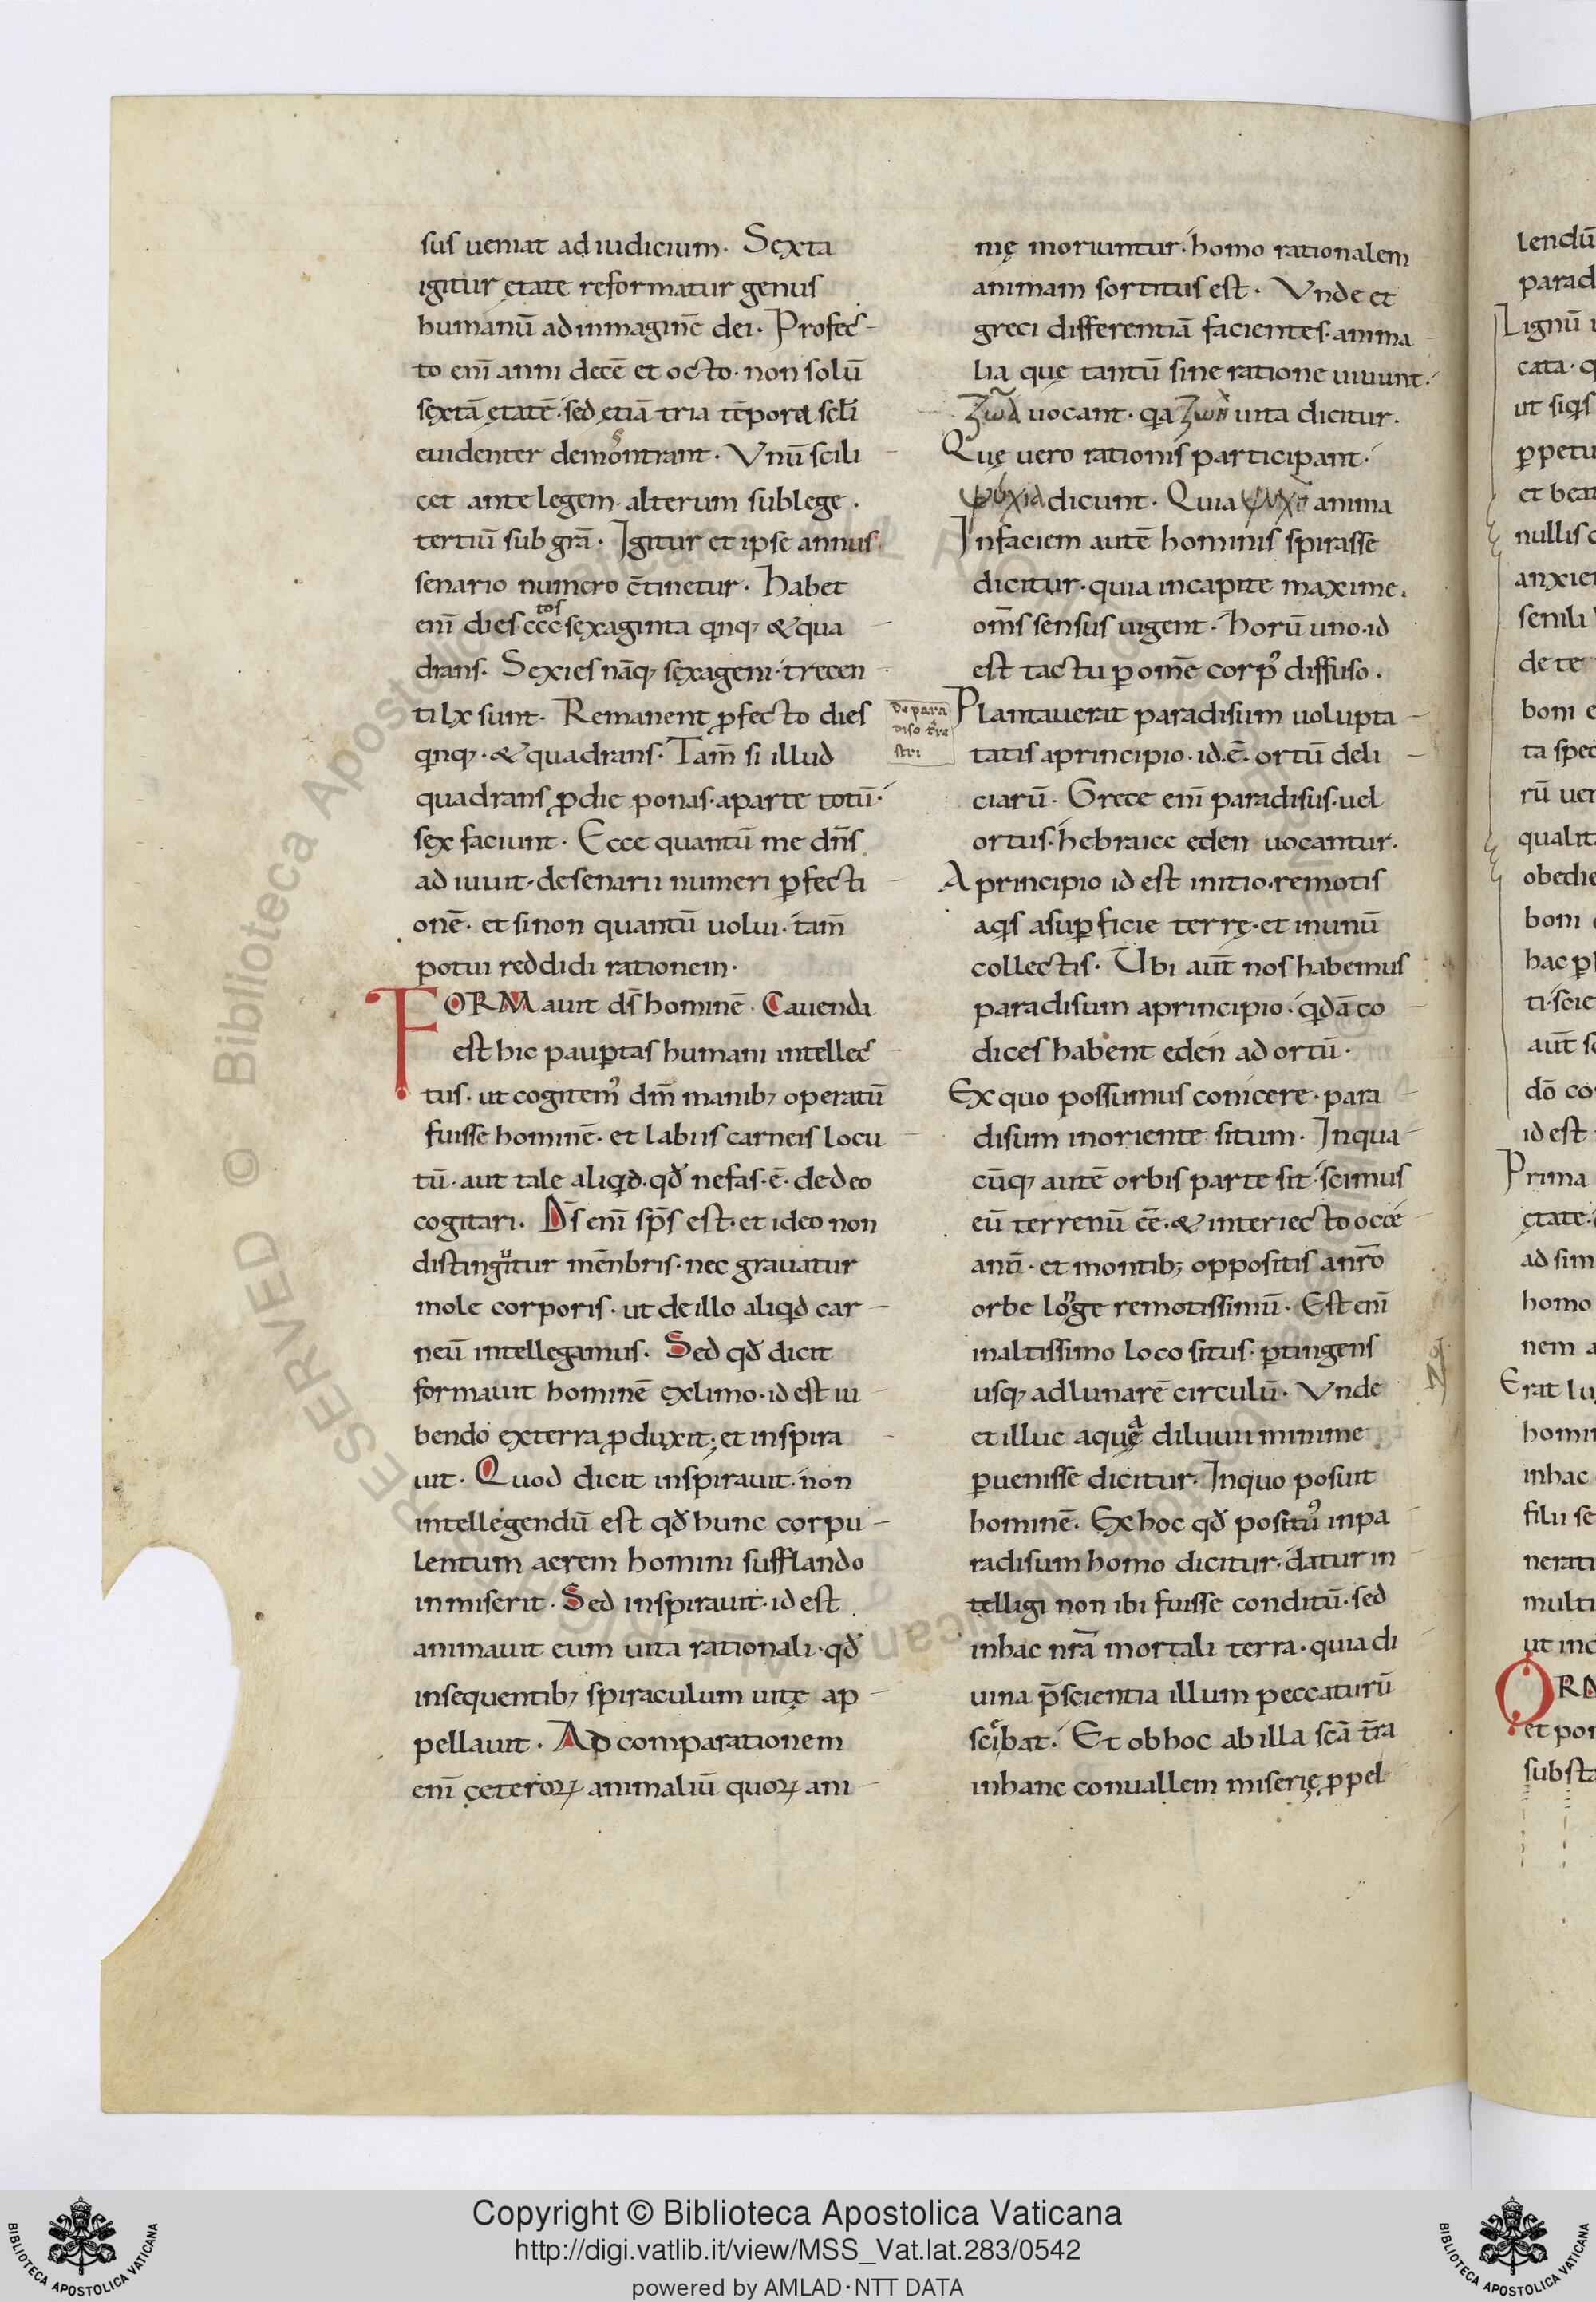 sus ueniat ad iudicium. Sexta
igitur ętate reformatur genus
humanū ad inmaginē dei. Profec-
to enī anni decē et octo. non solū
sextā ętatē. sed ętiā tria tēpora scłi
euidenter demosntrant. Vnū scili
cet ante legem. alterum sub lege.
tertiū sub grā. Igitur et ipse annus
senario numero c̄tinetur. Habet
enī dies ccctos sexaginta qnq; & qua
drans. Sexies nāq; sexageni. trecen
ti lx sunt. Remanent ꝓfecto dies
qnq;. & quadrans. Tam̄ si illud
quadrans ꝓ die ponas. a parte totū.
sex faciunt. Ecce quantū me dn̄s
ad iuuit. de senarii numeri ꝑfecti
onē. et si non quantū uolui. tam̄
potui reddidi rationem.
FORMauit ds̄ hominē. Cauenda
est hic pauꝑtas humani intellec
tus. ut cogitemꝰ dm̄ manib; operatū
fuisse hominē. et labiis carneis locu
tū. aut tale aliqid. qđ nefas. ē. de deo
cogitari. Ds̄ enī sp̄s est. et ideo non
distinguitur mēnbris. nec grauatur
mole corporis. ut de illo aliqid car-
neū intellegamus. Sed qđ dicit
formauit hominē ex limo. id est iu-
bendo ex terra ꝓduxit; et inspira
uit. Quod dicit inspirauit. non
intellegendū est qđ hunc corpu-
lentum aerem homini sufflando
inmiserit. Sed inspirauit. id est
animauit eum uita rationali. qđ
in sequentib; spiraculum uitę ap-
pellauit. Ad comparationem
enī ceteroꝝ animaliū quoꝝ ani-
mę moriuntur. homo rationalem
animam sortitus est. Vnde et
greci differentiā facientes. anima
lia quę tantū sine ratione uiuunt.
ζωα uocant. qa ζωη uita dicitur.
Quę uero rationis participant.
ψυχια dicunt. Quia ψυχη anima
In faciem autē hominis spirasse
dicitur. quia in capite maxime.
om̄s sensus uigent. Horū uno. id
est tactu ꝑ omē corpꝰ diffuso.
de para
diso t̄re
stri
Plantauerat paradisum uolupta-
tatis a principio. id. ē. ortū deli-
ciarū. Grece enī paradisus. uel
ortus. hebraice eden uocantur.
A principio id est initio. remotis
aqis a suꝑficie terrę. et in unū
collectis. Ubi aut̄ nos habemus
paradisum a principio. qidā co
dices habent eden ad ortū.
Ex quo possumus conicere. para
disum in oriente situm. In qua-
cūq; autē orbis parte sit. scimus
eū terrenū eē̄. & interiecto occe
anū. et montib; oppositis a nr̄o
orbe longe remotissimū. Est enī
in altissimo loco situs. ꝑtingens
usq; ad lunarē circulū. Vnde
et illuc aquęa diluuii minime
ꝑuenisse dicitur. In quo posuit
hominē. Ex hoc qđ positꝰ in pa
radisum homo dicitur. datur in
telligi non ibi fuisse conditū. sed
in hac nr̄a mortali terra. quia di
uina p̄scientia illum peccaturū
sciebat. Et ob hoc ab illa scā t̄ra
in hanc conuallem miserię ꝓpel
lendū
parad
Lignū
cata. q
ut siqis
ꝑpetu
et bea
nullis
anxie
senili
de te
boni e
ta spec
rū uer
qualit
obedie
boni
hac ꝑ
ti. scie
aut̄ s
dō co
id est
Prima
ętate.
ad sim
homo
nem a
Erat lu
homin
in hac
filii se
nerati
multi
ut inc
et por
substa
Copyright © Biblioteca Apostolica Vaticana
http://digi.vatlib.it/view/MSS_Vat.lat.283/0542
powered by AMLAD·NTT DATA
BIBLIOTECA APOSTOLICA VATICANA
BIBLIOTECA APOSTOLICA VATICANA